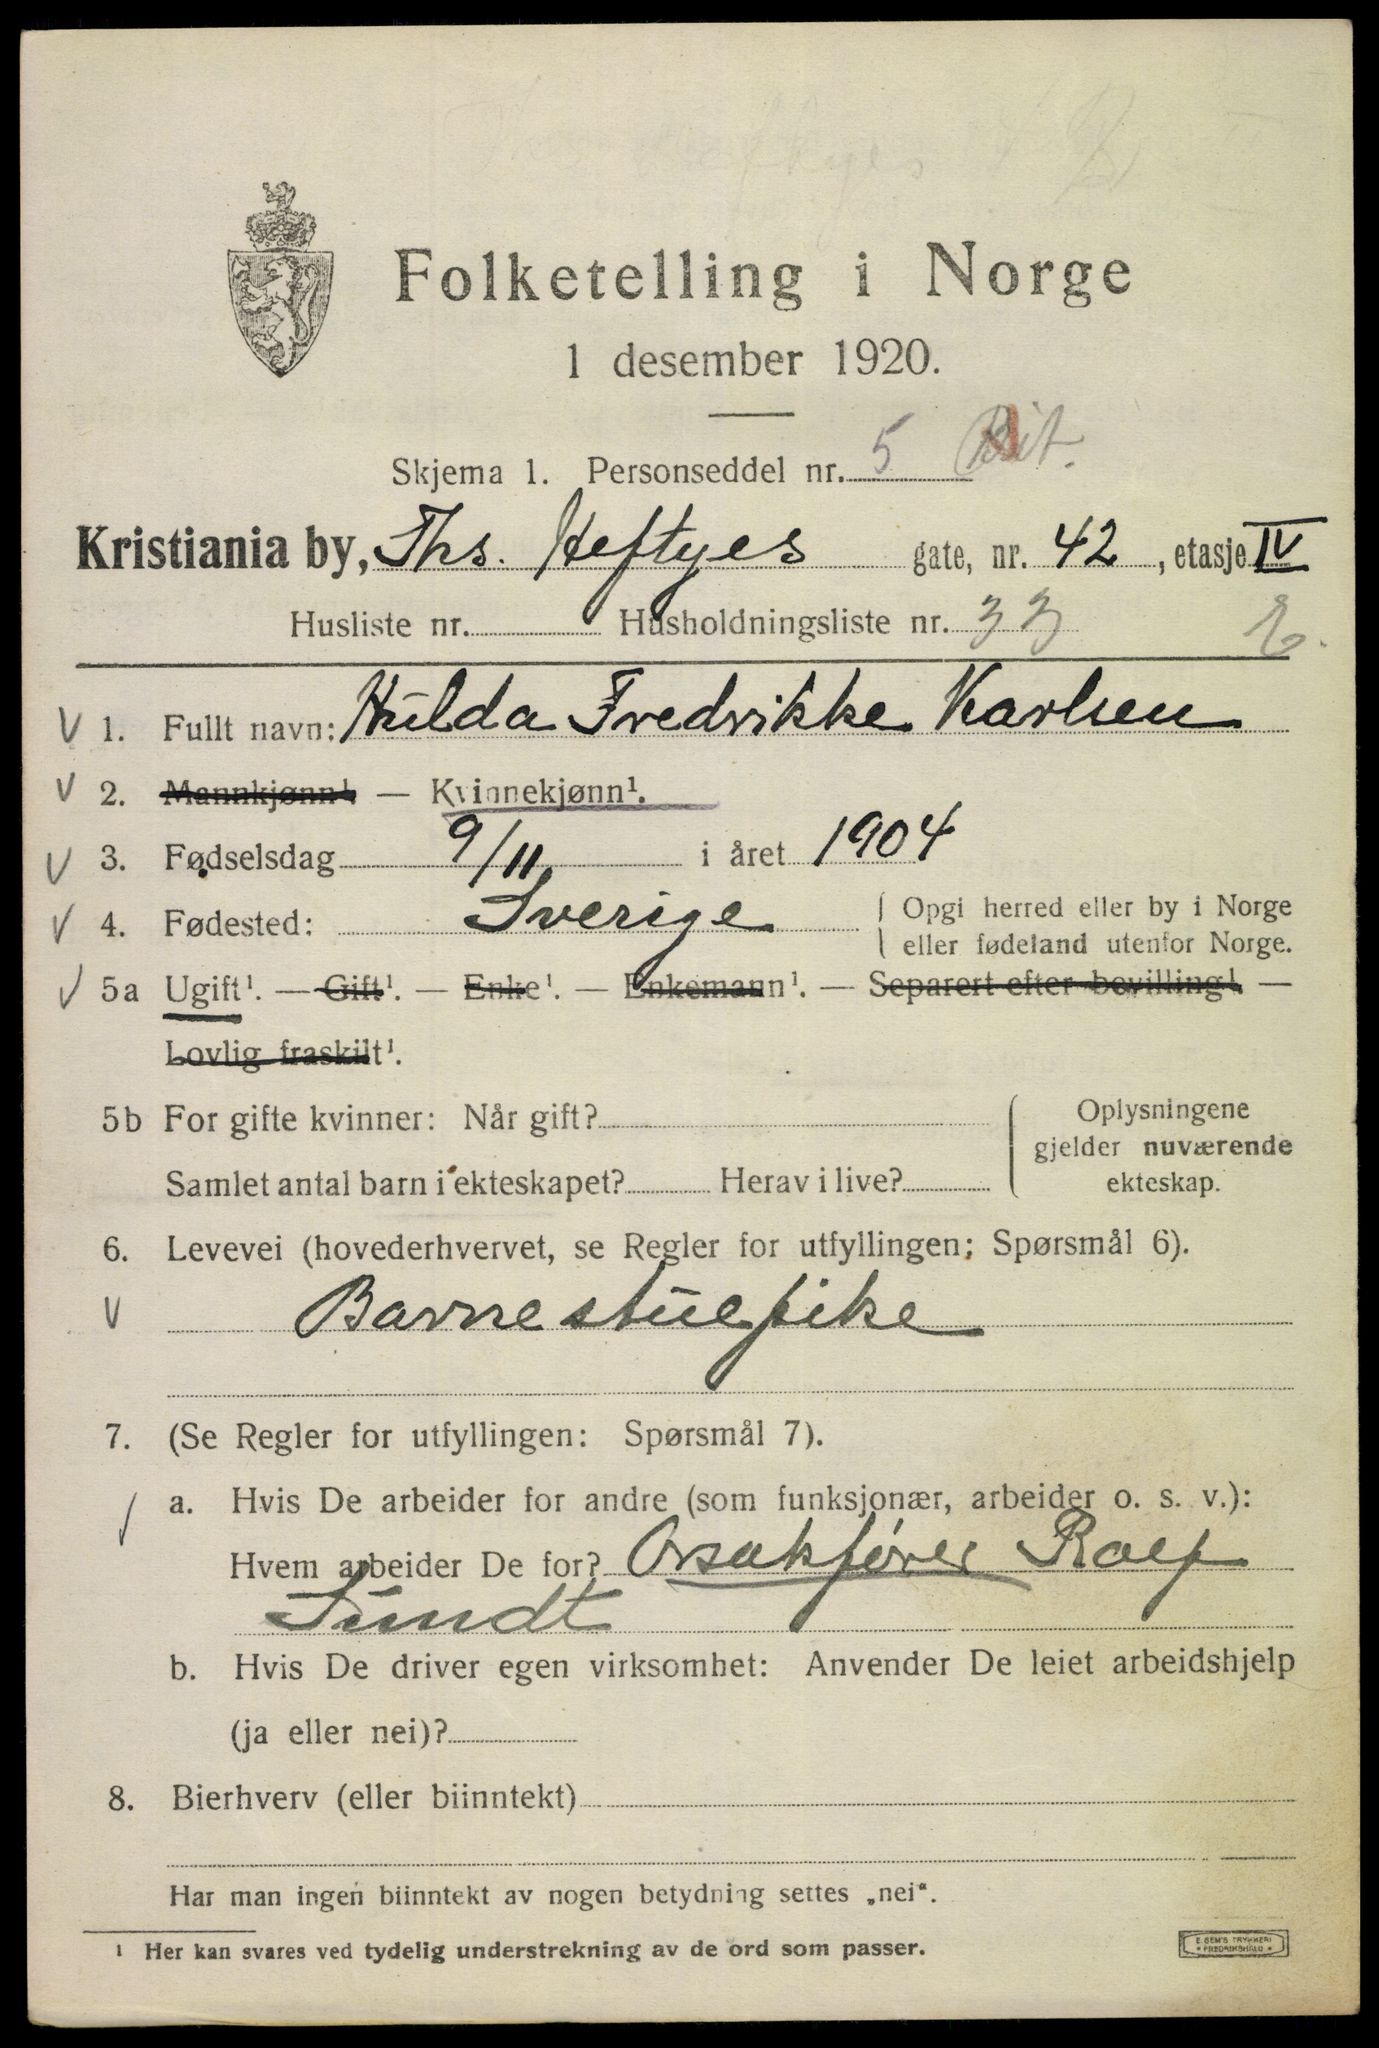 Folketelling i Norge
1 desember 1920.
Skjema 1. Personseddel nr. 5
Kristiania by, Ths. Heftyes gate, nr. 42, etasje IV
Husliste nr. Husholdningsliste nr. 33
V 1. Fullt navn: Hulda Fredrikke Karlsen
V 2. Mannkjønn¹. — Kvinnekjønn¹.
V 3. Fødselsdag 9/11 i året 1904
V 4. Fødested: Sverige { Opgi herred eller by i Norge
eller fødeland utenfor Norge.
V 5a Ugift¹. — Gift¹. — Enke¹. — Enkemann¹. — Separert efter bevilling¹. —
Lovlig fraskilt¹.
5b For gifte kvinner: Når gift? { Oplysningene
gjelder nuværende
Samlet antal barn i ekteskapet? Herav i live? ekteskap.
6. Levevei (hovederhvervet, se Regler for utfyllingen; Spørsmål 6).
V Barnestuepike
7. (Se Regler for utfyllingen: Spørsmål 7).
a. Hvis De arbeider for andre (som funksjonær, arbeider o. s. v.):
Hvem arbeider De for? Orsakfører Rolf
Sundt
b. Hvis De driver egen virksomhet: Anvender De leiet arbeidshjelp
(ja eller nei)?
8. Bierhverv (eller biinntekt)
Har man ingen biinntekt av nogen betydning settes „nei“.
¹ Her kan svares ved tydelig understrekning av de ord som passer.
E. SEM'S TRYKKERI
* FREDRIKSHALD *